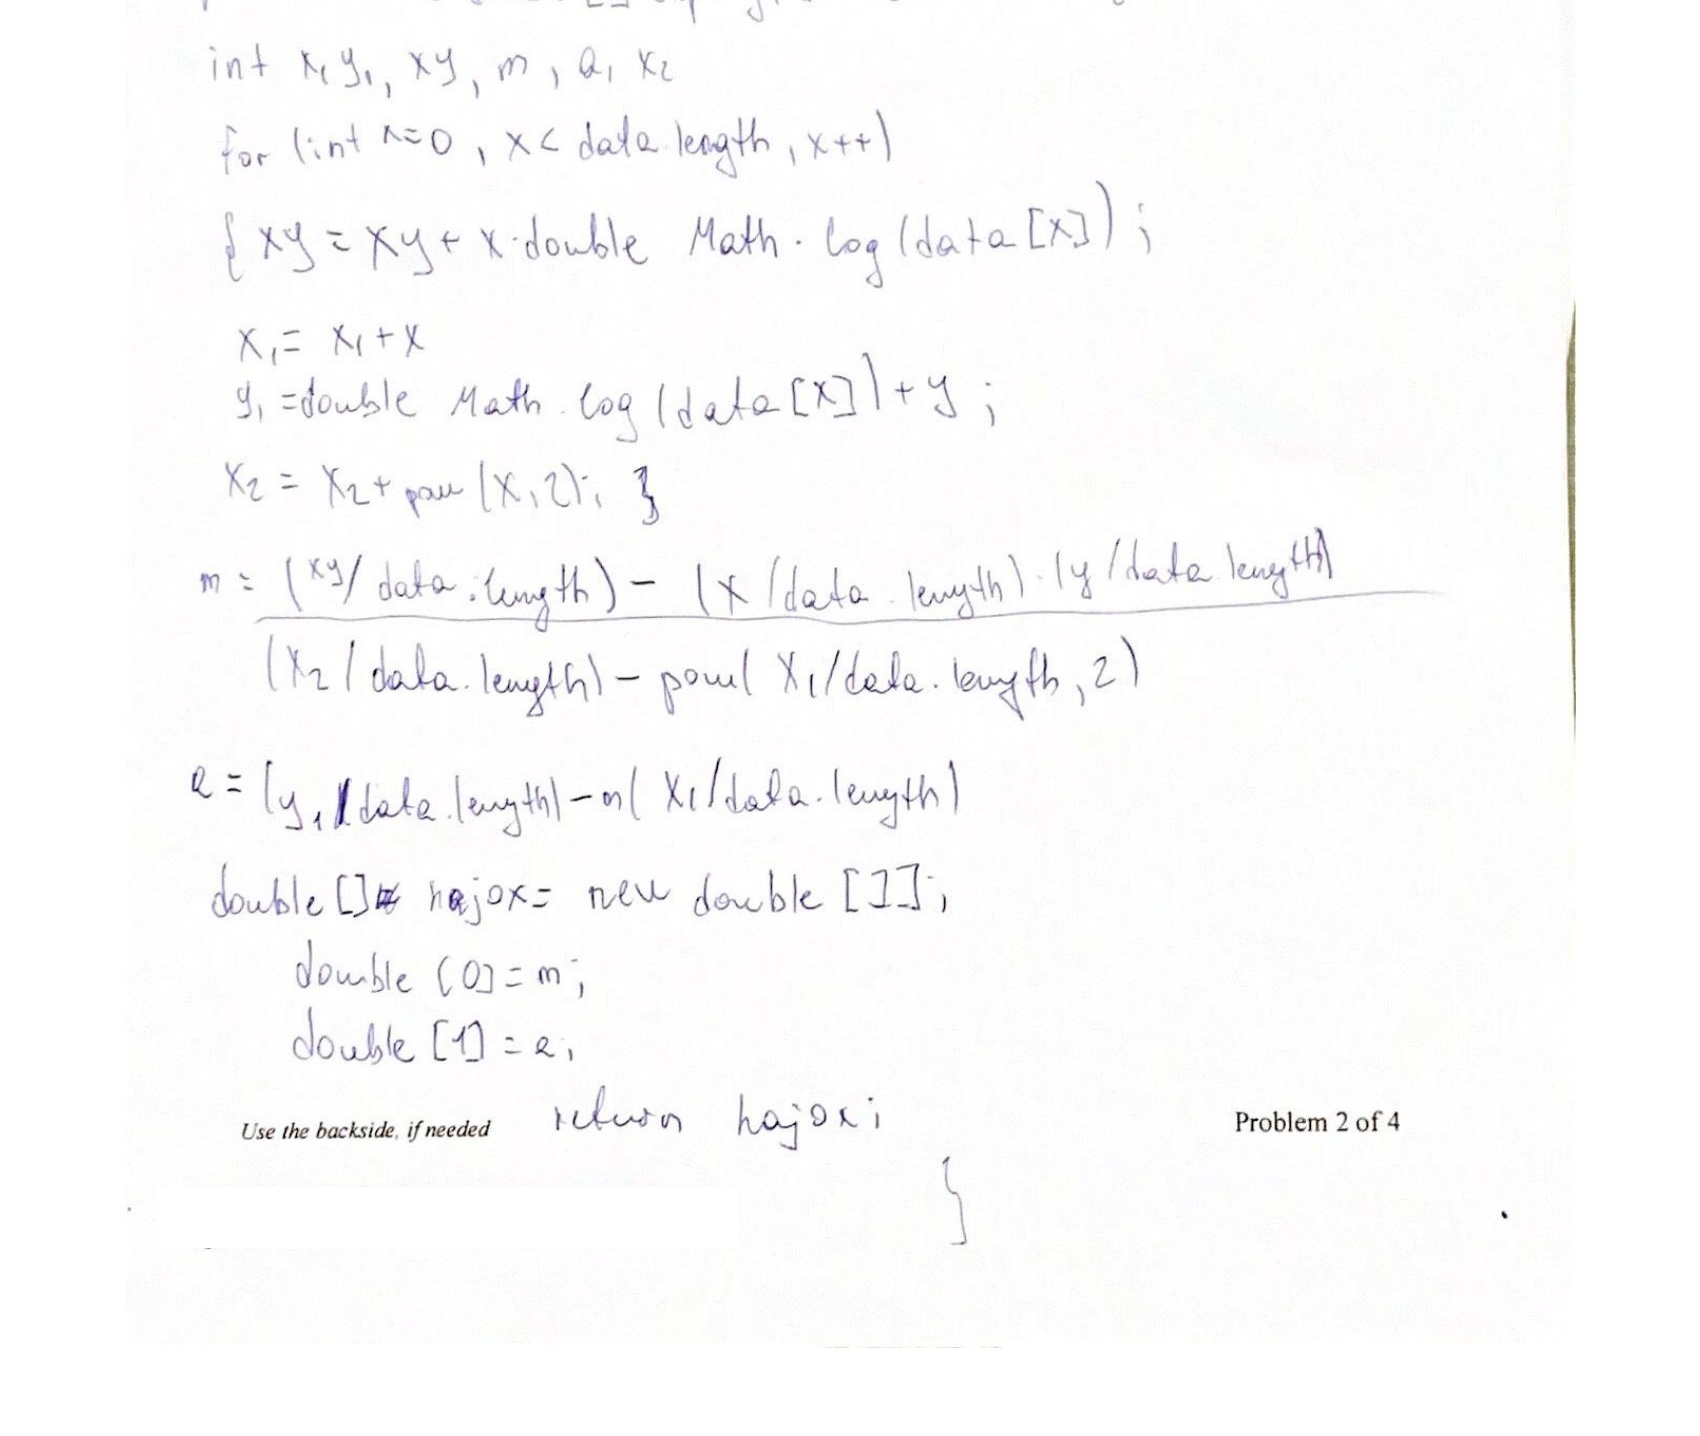 int x, y₁, xy, m, a, x₂
for (int x=0, x< data.length, x++)
{ xy = xy + x·double Math.log(data[x]);
x₁ = x₁ + x
y₁ = double Math.log(data[x]) + y;
x₂ = x₂ + pow(x,2); }
m = (xy/data.length) - (x/data.length)·(y/data.length)
(x₂/data.length) - pow(x₁/data.length, 2)
a = (y₁/data.length) - m(x₁/data.length)
double [] hajox = new double [];
double [0] = m;
double [1] = a;
return hajox;
Use the backside, if needed
Problem 2 of 4
}